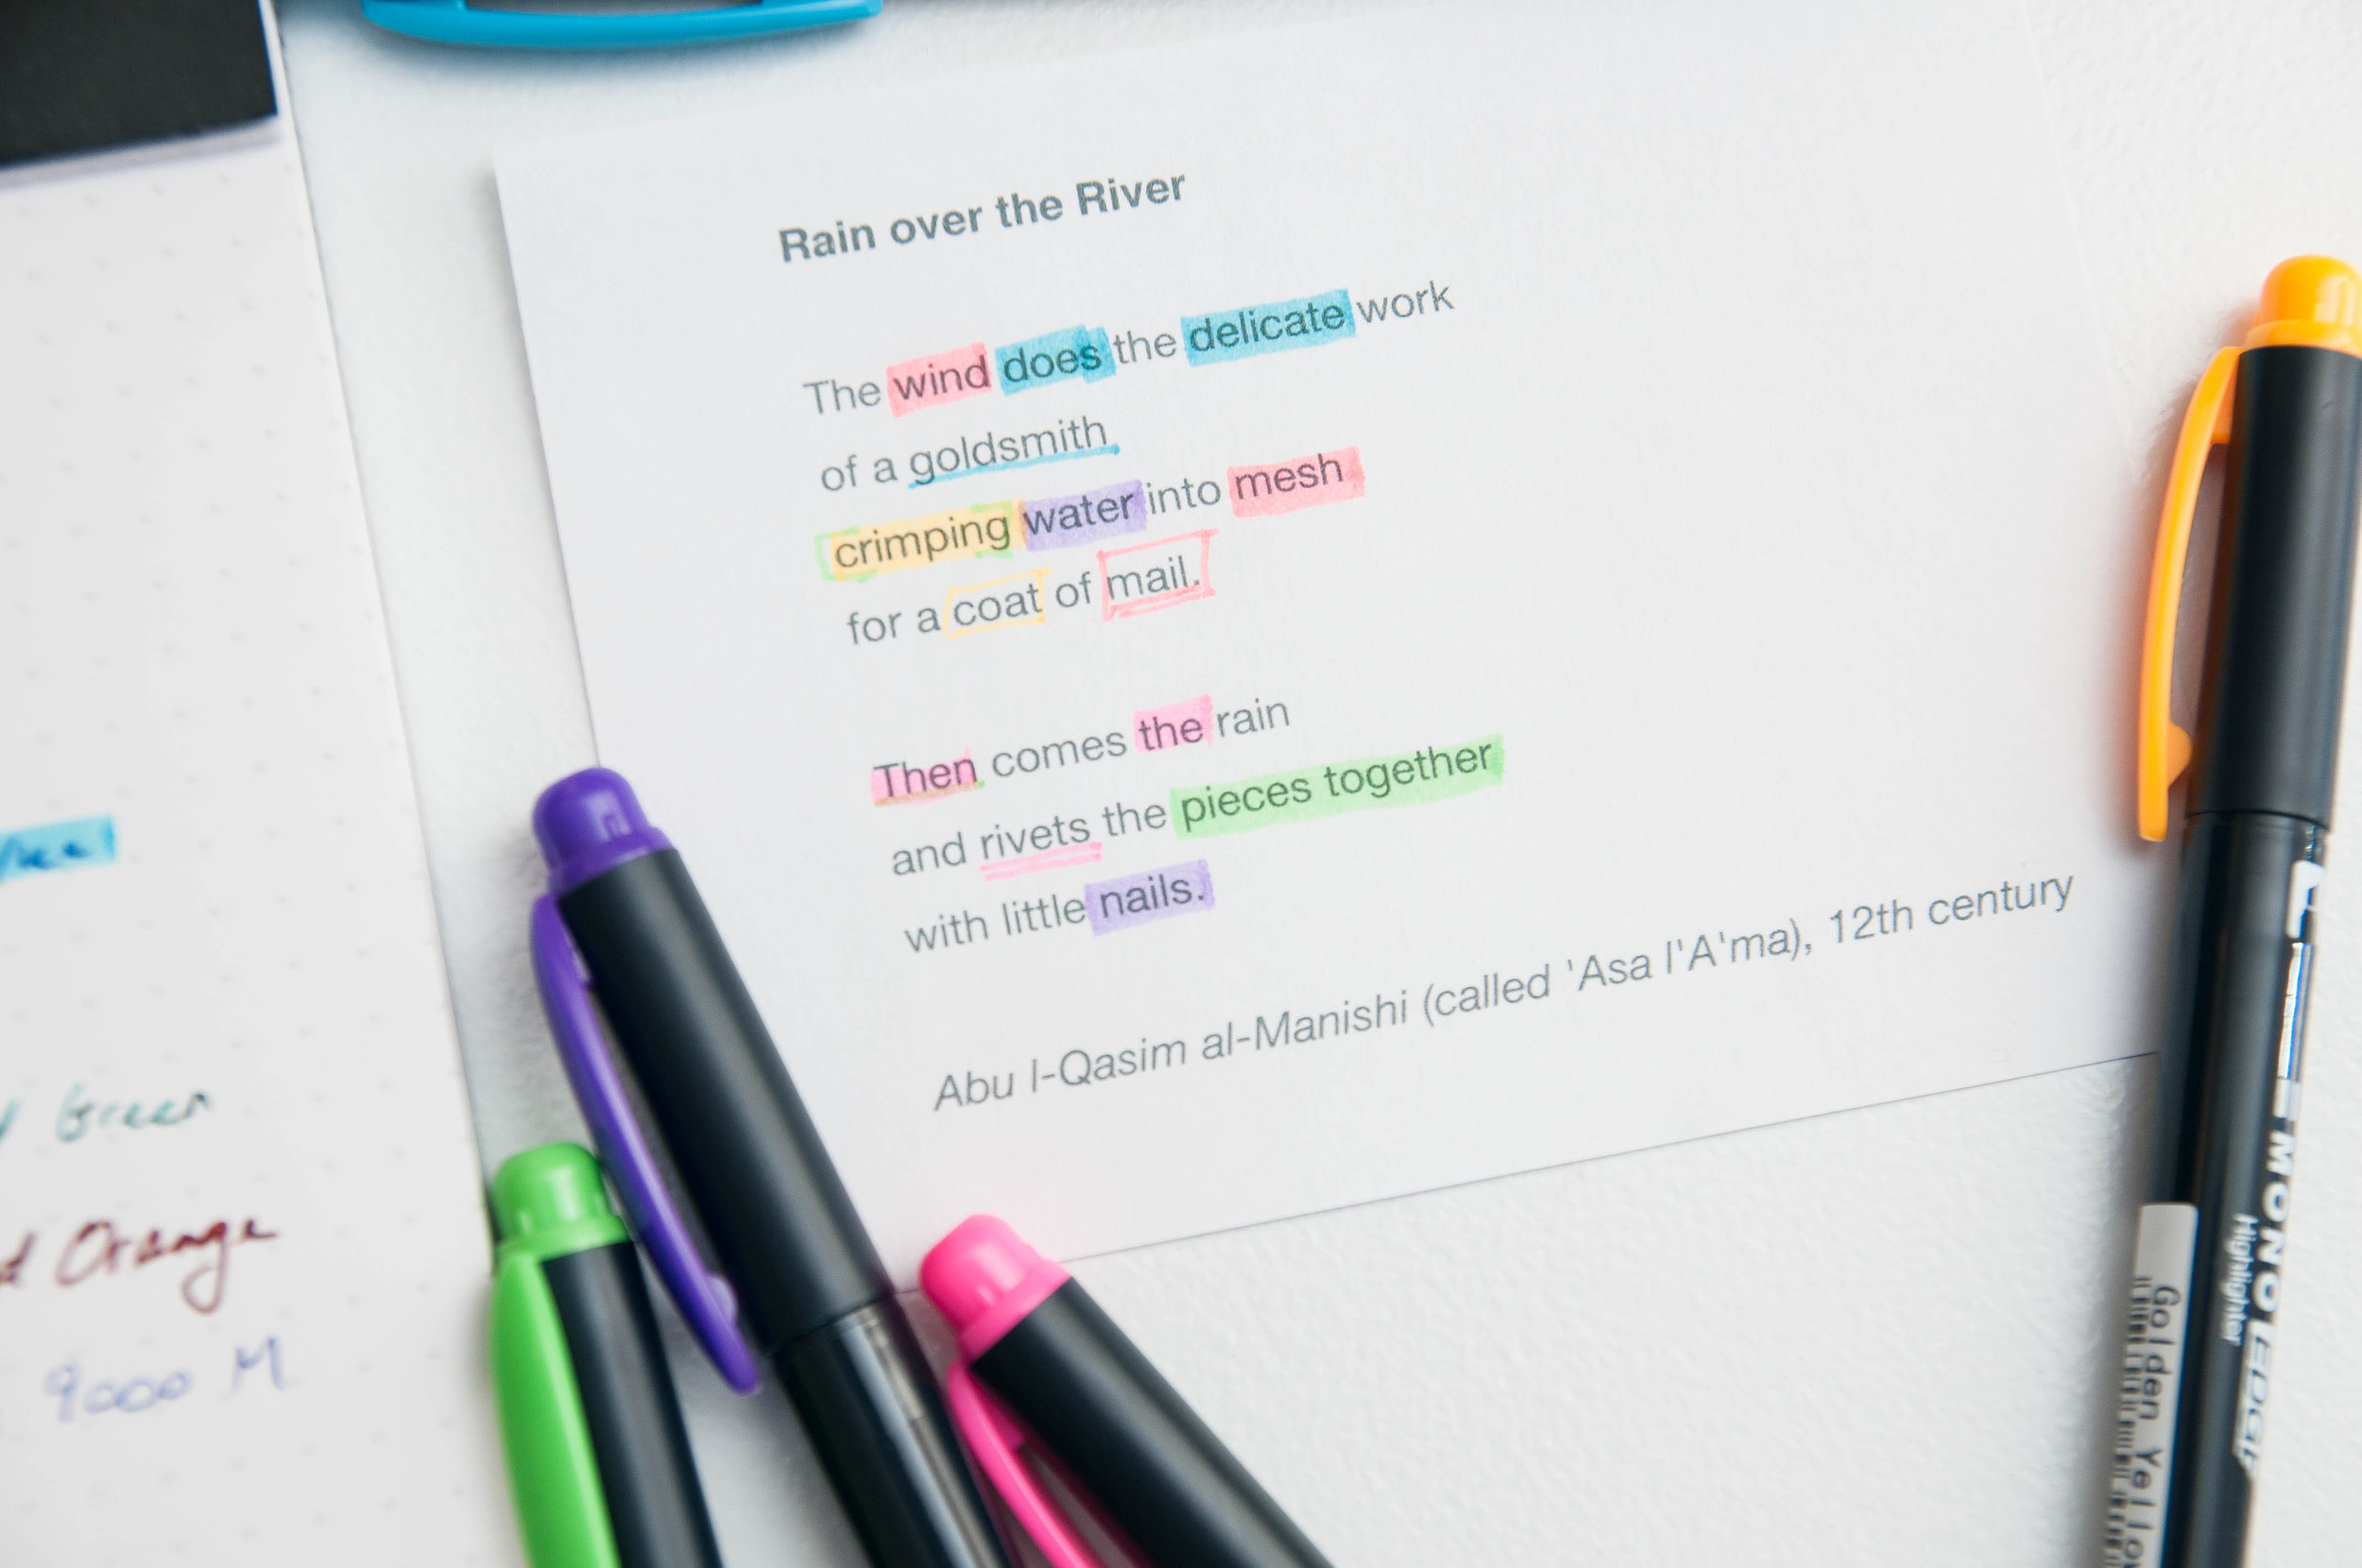 Rain over the River
The wind does the delicate work
of a goldsmith
crimping water into mesh
for a coat of mail.
Then comes the rain
and rivets the pieces together
with little nails.
Abu l-Qasim al-Manishi (called 'Asa l'A'ma), 12th century
Green
Orange
9000 M
MONO EDGE
Highlighter
Golden Yellow